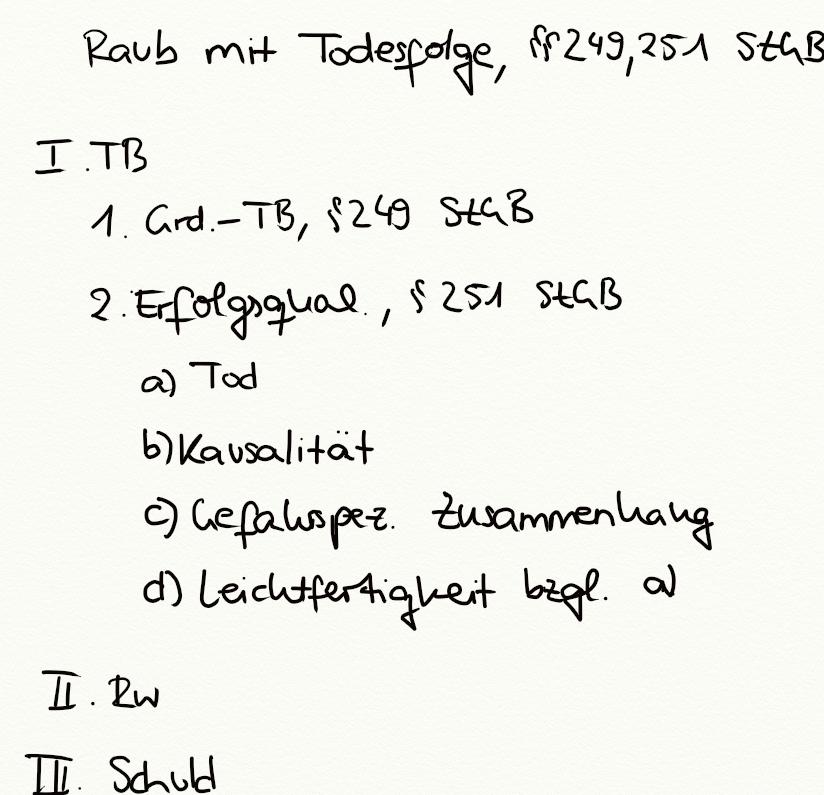 Raub mit Todesfolge, §§ 249, 251 StGB
I. TB
1. Grd.-TB, § 249 StGB
2. Erfolgsqual., § 251 StGB
a) Tod
b) Kausalität
c) Gefahrspez. Zusammenhang
d) Leichtfertigkeit bzgl. a)
II. Rw
III. Schuld